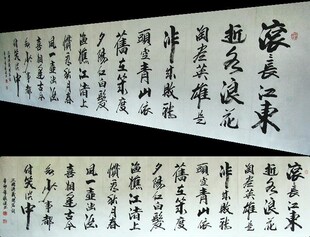 滚々長江東
逝水浪花
淘盡英雄是
非成敗轉
頭空青山依
舊在幾度
夕陽紅白髮
漁樵江渚上
慣看秋月春
風一壺濁酒
喜相逢古今
多少事都
付笑談中
滚々長江東
逝水浪花
淘盡英雄是
非成敗轉
頭空青山依
舊在幾度
夕陽紅白髮
漁樵江渚上
慣看秋月春
風一壺濁酒
喜相逢古今
多少事都
付笑談中